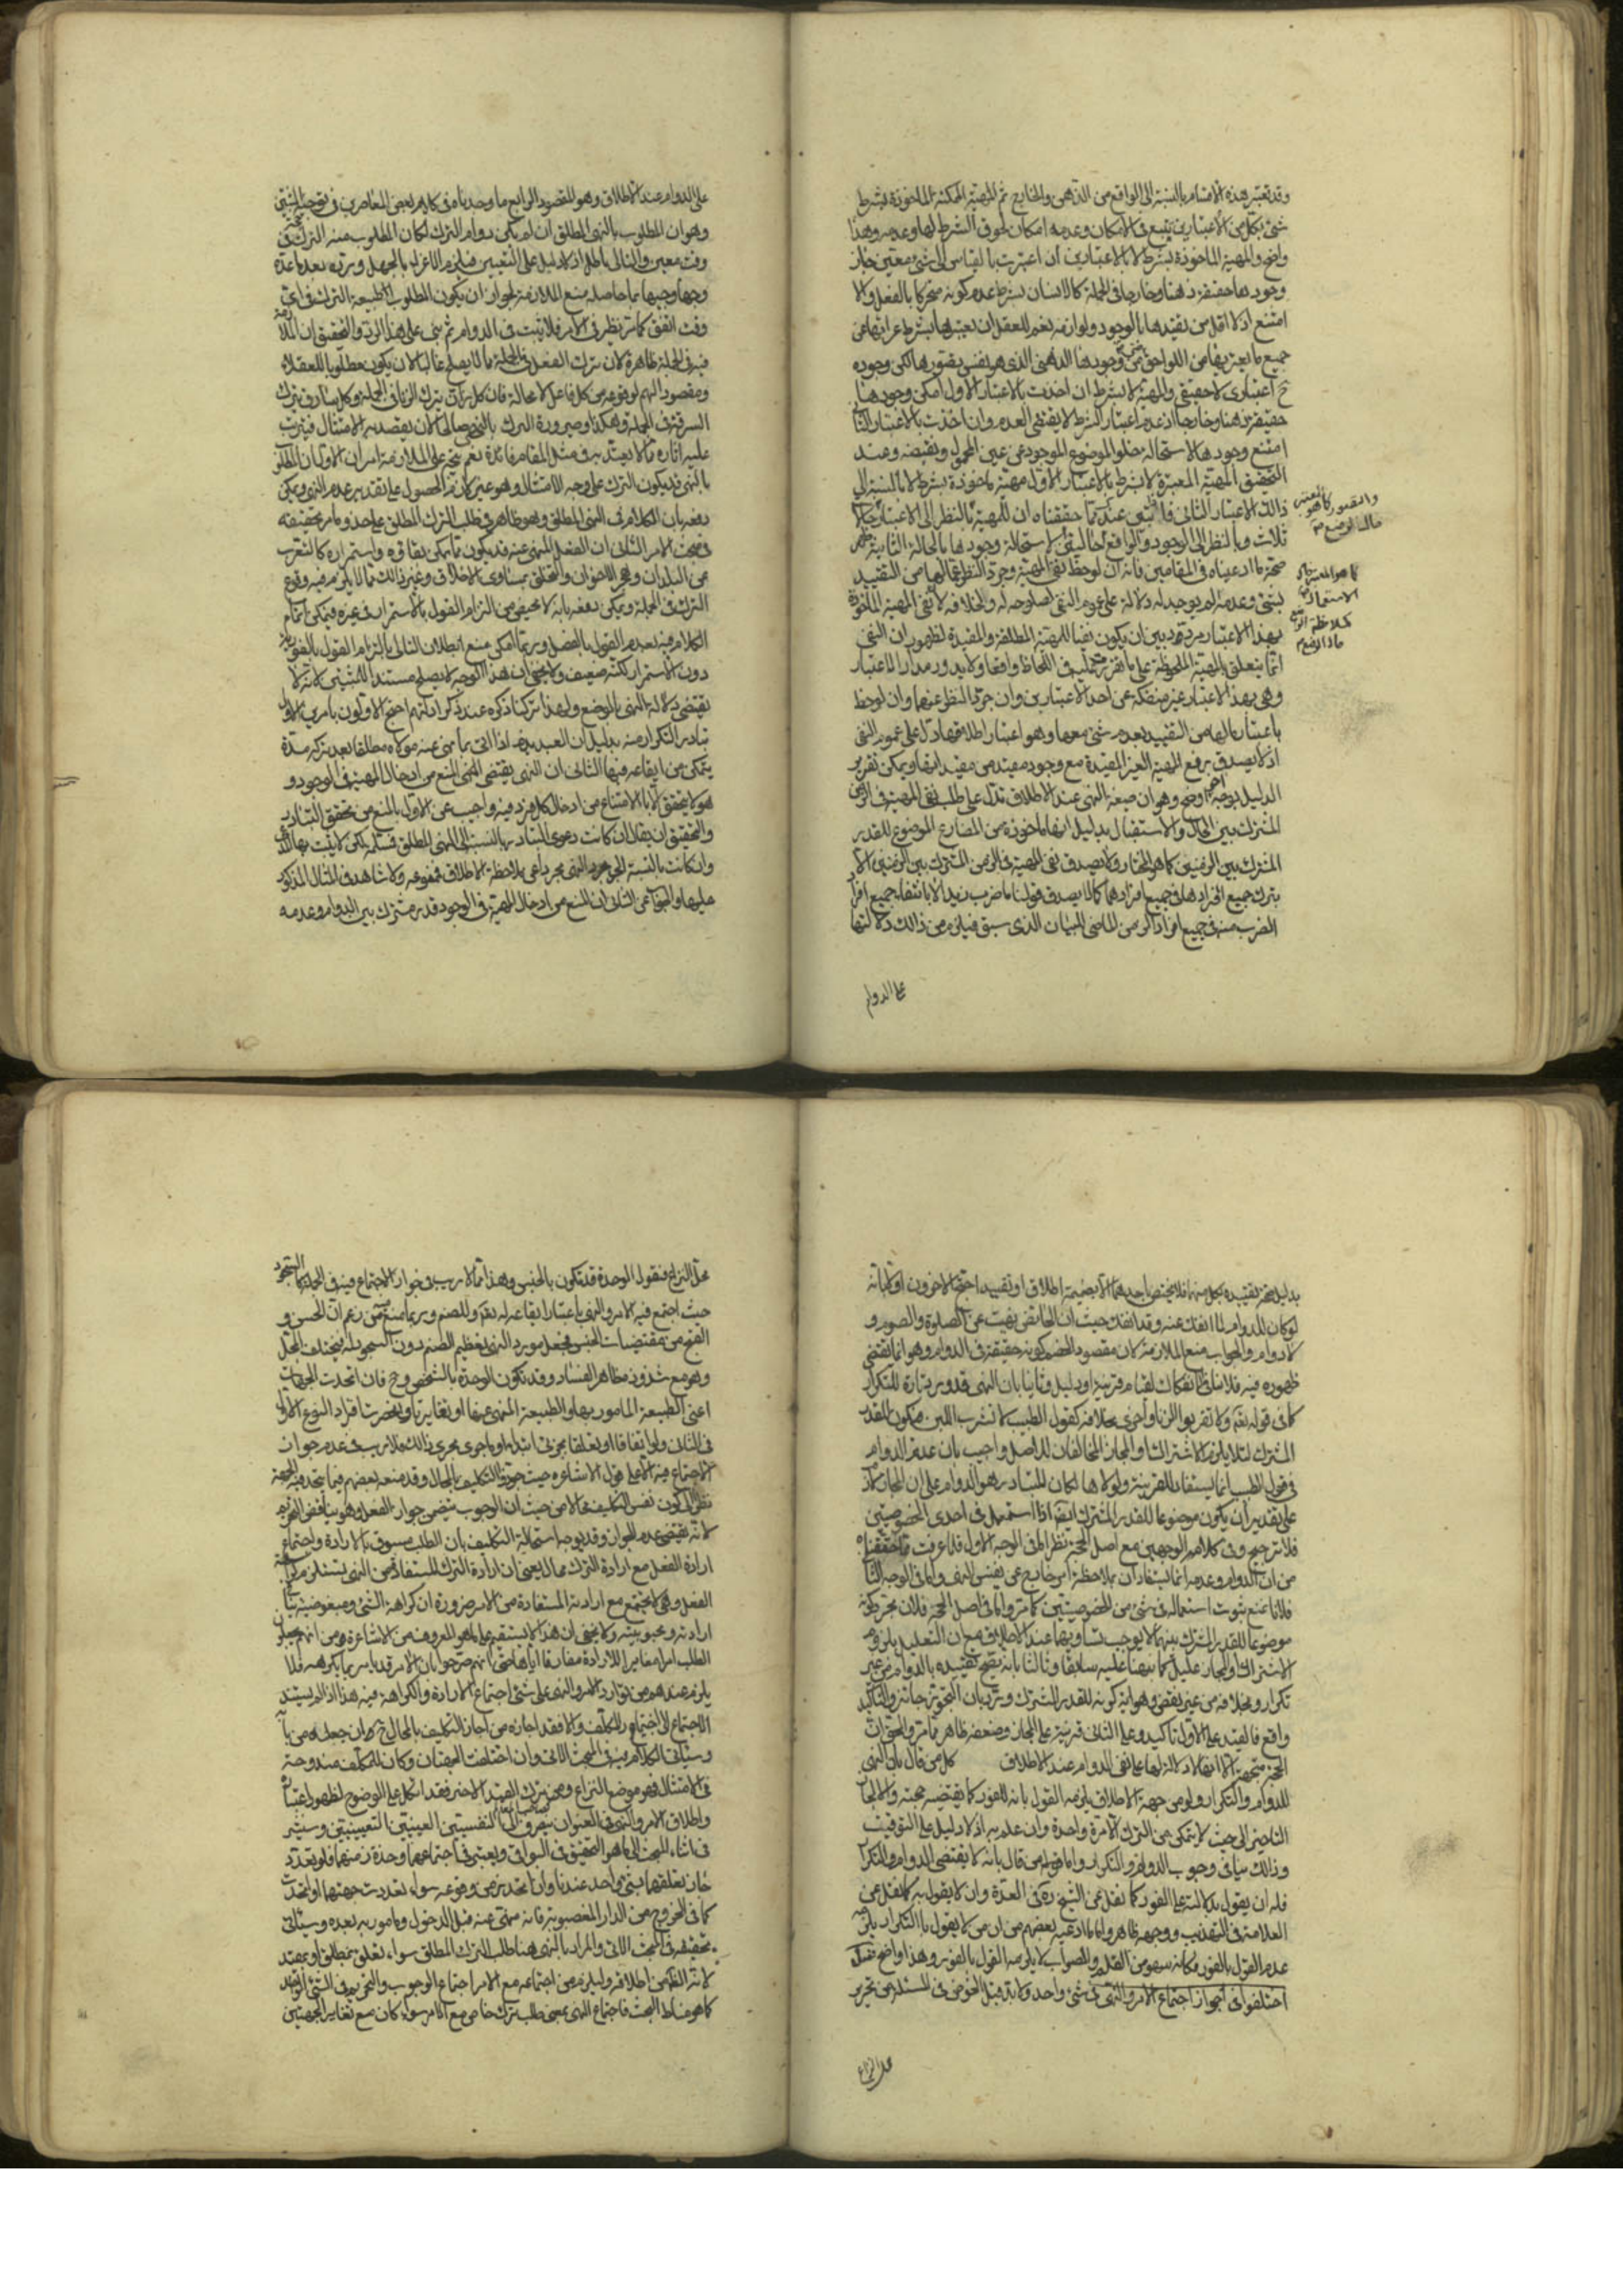 وقد تعتبر هذه الاقسام بالنسبة الى الواقع من الذهن والخارج ثم المهية الممكنة الماخوذة بشرط
شئ بكل من الاعتبارين يتبع في الامكان وعدمه امكان لحوق الشرط لها وعدمه وهذا
واضح والمهية الماخوذة بشرط لا بالاعتبارين ان اعتبرت بالقياس الى شئ معين جاز
وجودها حقيقة ذهنا وخارجا في الجملة كالانسان بشرط عدم كونه متحركا بالفعل والا
امتنع اذ لا اقل من تقيدها بالوجود ولوازمه نعم للعقل ان يعتبرها بشرط عرائها عن
جميع ما يعتريها من اللواحق حتى وجودها الذهني الذي هو نفس تصورها لكن وجوده
ح اعتباري لا حقيقي والمهية لا بشرط ان اخذت بالاعتبار الاول امكن وجودها
حقيقة ذهنا وخارجا اذ عدم اعتبار الشرط لا يقتضي العدم وان اخذت بالاعتبار الثاني
امتنع وجودها لاستحالة خلو الموضوع الموجود عن عين المحمول ونقيضه وعند
التحقيق المهية المعتبرة لا بشرط بالاعتبار الاول مهية ماخوذة بشرط لا بالنسبة الى
ذلك الاعتبار الثاني
ثلاث وبالنظر الى الوجود والواقع حالتين لاستحالة وجودها بالحالة الثانية ظهر
صحة ما ادعيناه في المقامين فانه ان لوحظ نفي المهية وجرد النظر عما لها من التقييد
بشئ وعدمه لم يوجد له دلالة على عموم النفي لصلوحه له ولخلافه لان نفي المهية الماخوذة
بهذا الاعتبار مردد بين ان يكون نفيا للمهية المطلقة والمقيدة لظهور ان النفي
انما يتعلق بالمهية الملحوظة على ما تقرر وتمثلت في اللحاظ واقعا ولا يدور مدار الاعتبار
وهي بهذا الاعتبار غير منفكة عن احد الاعتبارين وان جرد النظر عنهما وان لوحظ
باعتبار ما لها من التقييد بعدم شئ معها وهو اعتبار اطلاقها دل على عموم النفي
اذ لا يصدق رفع المهية الغير المقيدة مع وجود مقيد من مقيداتها ويمكن تقرير
الدليل بوجه اخر اوضح وهو ان صيغة النهي عند الاطلاق تدل على طلب نفي المهية في الزمن
المشترك بين الحال والاستقبال بدليل انها ماخوذة من المضارع الموضوع للقدر
المشترك بين الزمنين كما هو المختار ولا يصدق نفي المهية في الزمن المشترك بين الزمنين الا
بترك جميع افرادها في جميع افرادهما كما لا يصدق قولنا ما ضرب زيد الا بانتفاء جميع افراد
الضرب منه في جميع افراد الزمن الماضي للبيان الذي سبق فيلزم من ذلك دلالتها
على الدوام
على الدوام عند الاطلاق وهو المقصود الرابع ما وجدناه في كلام بعض المعاصرين في توجيه المثبتين
وهو ان المطلوب بالنهي المطلق ان لم يكن دوام الترك لكان المطلوب منه الترك في
وقت معين والتالي باطل اذ لا دليل على التعيين فيلزم الاغراء بالجهل ورده بعد ما عده
وجها وجيها بما حاصله منع الملازمة لجواز ان يكون المطلوب طبيعة الترك في اي
وقت اتفق كما مر نظيره في الامر فلا يثبت الدوام ثم بنى على هذا الرد والتحقيق ان الملازمة
فيه في الجملة ظاهرة لان ترك الفعل في الجملة مما لا يصلح غالبا لان يكون مطلوبا للعقلاء
ومقصودا لهم لوقوعه من كل فاعل لا محالة فان كل زان يترك الزنا في الجملة وكل سارق يترك
السرقة في الجملة وهكذا وصيرورة الترك بالنهي صالحا لان يقصد به الامتثال فيترتب
عليه اثاره مما لا يعتد به في مثل المقام فائدة نعم يتجه على الملازمة امران الاول ان المطلوب
بالنهي قد يكون الترك على وجه الامتثال وهو غير لازم الحصول على تقدير عدم النهي ويمكن
دفعه بان الكلام في النهي المطلق وهو ظاهر في طلب الترك المطلق على حذو ما مر تحقيقه
في مبحث الامر الثاني ان الفعل المنهي عنه قد يكون مما يمكن بقاؤه واستمراره كالتغرب
عن البلدان وهجر الاخوان والتخلق بمساوي الاخلاق وغير ذلك مما لا يلزم فيه وقوع
الترك في الجملة ويمكن دفعه بانه لا محيص من التزام القول بالاستمرار في غيره فيمكن اتمام
الكلام فيه بعدم القول بالفصل وربما امكن منع ابطلان التالي بالتزام القول بالفور
دون الاستمرار لكنه ضعيف ولا يخفى ان هذا الوجه لا يصلح مستندا للمثبتين لانه لا
يقتضي دلالة النهي بالوضع ولهذا تركنا ذكره عند ذكر ادلتهم احتج الاولون بامرين الاول
تبادر التكرار منه بدليل ان العبد يذم اذا اتى بما نهي عنه مولاه مطلقا بعد تركه مدة
يتمكن من ايقاعه فيها الثاني ان النهي يقتضي المنع من ادخال المهية في الوجود و
هو لا يتحقق الا بالامتناع من ادخال كل فرد فيه واجيب عن الاول بالمنع من تحقق التبادر
والتحقيق ان يقال ان كانت دعوى التبادر بالنسبة الى النهي المطلق فمسلمة لكن لا يثبت بها الوضع
وان كانت بالنسبة الى النهي مجردا عن ملاحظة الاطلاق فممنوعة ولا شاهد في المثال المذكور
عليها والجواب عن الثاني ان المنع من ادخال المهية في الوجود قدر مشترك بين الدوام وعدمه
بدليل صحة تقييده بكل منهما فلا يختص باحدهما الا بضميمة اطلاق او تقييد احتج الاخرون اولا بانه
لو كان للدوام لما انفك عنه وقد انفك حيث ان الحائض نهيت عن الصلوة والصوم و
لا دوام والجواب منع الملازمة لان مقصود الخصم كونه حقيقة في الدوام وهو انما يقتضي
ظهوره فيه فلا ينافي الانفكاك لقيام قرينة او دليل وثانيا بان النهي قد ورد تارة للتكرار
كما في قوله تعم ولا تقربوا الزنا واخرى بخلافه كقول الطبيب لا تشرب اللبن فيكون للقدر
المشترك لئلا يلزم الاشتراك او المجاز المخالفان للاصل واجيب بان عدم الدوام
في قول الطبيب انما يستفاد للقرينة ولولاها لكان المتبادر هو الدوام على ان المجاز لازم
على تقدير ان يكون موضوعا للقدر المشترك ايضا اذا استعمل في احدى الخصوصيتين
فلا ترجيح وفي كلا الوجهين مع اصل الحجة نظر اما في الوجه الاول فلما عرفت مما حققناه
من ان الدوام وعدمه انما يستفادان بملاحظة امر خارج عن نفس النهي واما في الوجه الثاني
فلانا نمنع ثبوت استعماله في شئ من الخصوصيتين كما مر واما في اصل الحجة فلان مجرد كونه
موضوعا للقدر المشترك بينهما لا يوجب تساويهما عند الاطلاق مع ان التعليل بلزوم
الاشتراك والمجاز عليل كما نبهنا عليه سابقا وثالثا بانه يصح تقييده بالدوام من غير
تكرار وبخلافه من غير نقض وهو اية كونه للقدر المشترك ورد بان التجوز جائز والتاكيد
واقع فالقيد على الاول تاكيد وعلى الثاني قرينة على المجاز وضعفه ظاهر مما مر والحق ان
الحجة متجهة الا انها لا دلالة لها على نفي الدوام عند الاطلاق كل من قال بان النهي
للدوام والتكرار ولو من جهة الاطلاق يلزمه القول بانه للفور كما يقتضيه حجته والا لجاز
التاخير الى حيث لا يتمكن من الترك الا مرة واحدة وان علم به اذ لا دليل على التوقيت
وذلك ينافي وجوب الدوام والتكرار واما من قال بانه لا يقتضي الدوام والتكرار
فله ان يقول بدلالته على الفور كما نقل عن الشيخ ره في العدة وان لا يقول به كما نقل عن
العلامة في التهذيب ووجهه ظاهر واما ما ادعيه بعضهم من ان من لا يقول بالتكرار يلزمه
عدم القول بالفور فكانه سهو من القلم والصواب لا يلزمه القول بالفور وهذا واضح فصل
اختلفوا في جواز اجتماع الامر والنهي في شئ واحد ولا بد قبل الخوض في المسئلة من تحرير
محل النزاع
محل النزاع فنقول الوحدة قد تكون بالجنس وهذا مما لا ريب في جواز الاجتماع فيه في الجملة كالسجود
حيث اجتمع فيه الامر والنهي باعتبار ايقاعه له تعم وللصنم وربما منعه من زعم ان الحسن و
القبح من مقتضيات الجنس فجعل مورد النهي تعظيم الصنم دون السجود له فيختلف المحل
وهو مع شذوذه ظاهر الفساد وقد تكون الوحدة بالشخص وح فان اتحدت الجهات
اعني الطبيعة المامور بها والطبيعة المنهي عنها او تغايرتا وانحصرت افراد النوع الاول
في الثاني ولو اتفاقا او تعلقا بجزئي ابتداء او ما جرى مجرى ذلك فلا ريب في عدم جواز
الاجتماع فيه الا على قول الاشاعرة حيث جوزوا التكليف بالمحال وقد منعه بعضهم فيما يتحد فيه الجهة
نظرا الى كون نفس التكليف محالا من حيث ان الوجوب يتضمن جواز الفعل وهو يناقض التحريم
لانه يقتضي عدم الجواز وقد يوجه استحالة التكليف بان الطلب مسبوق بالارادة واجتماع
ارادة الفعل مع ارادة الترك محال يعني ان ارادة الترك المستفادة من النهي يستلزم كراهة
الفعل وهي لا تجتمع مع ارادته المستفادة من الامر ضرورة ان كراهة الشئ ومبغوضيته ينافي
ارادته ومحبوبيته ولا يخفى ان هذا لا يستقيم على ما هو المعروف من الاشاعرة من انهم يجعلون
الطلب امرا مغايرا للارادة مفارقا اياها حتى انهم صرحوا بان الامر قد يامر بما يكرهه فلا
يلزم عندهم من توارد الامر والنهي على شئ اجتماع الارادة والكراهة فيه هذا اذا لم يستند
الاجتماع الى اختيار المكلف والا فقد اجازه من اجاز التكليف بالمحال ح وان جعله من بابه
وسياتي الكلام فيه في المبحث الاتي وان اختلفت الجهتان وكان للمكلف مندوحة
في الامتثال فهو موضع النزاع ومن ترك القيد الاخير فقد اتكل على الوضوح لظهور اعتباره
واطلاق الامر والنهي في العنوان ينصرف الى النفسيين العينيين التعيينيين وسنشير
في اثناء المبحث الى ما هو التحقيق في البواقي ويعتبر في اجتماعهما وحدة زمنهما فلو تعدد
جاز تعلقهما بشئ واحد عندنا وان اتحد زمن وقوعه سواء تعددت جهتهما او اتحدت
كما في الخروج من الدار المغصوبة فانه منهي عنه قبل الدخول ومامور به بعده وسياتي
تحقيقه في المبحث الاتي والمراد بالنهي هنا طلب الترك المطلق سواء تعلق بمطلق او بمقيد
لانه الظاهر من اطلاقه وليلزم من اجتماعه مع الامر اجتماع الوجوب والتحريم في الشئ الواحد
كما هو مناط البحث فاجتماع النهي بمعنى طلب ترك خاص مع الامر سواء كان مع تغاير الجهتين